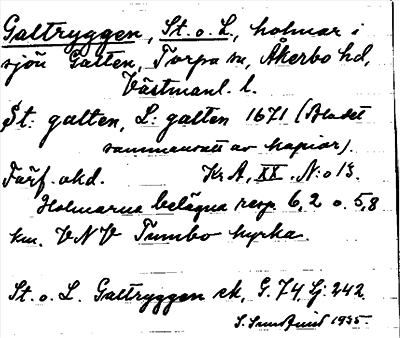 Galtryggen, St. o. L., holmar i
sjön Galten, Torpa sn, Åkerbo hd,
Västmanl. l.
St. galten, L: galten 1671 (Bladet
sammansatt av kopior).
Järf. okd. Kr A, XX. N:o 13.
Holmarna belägna resp. 6,2 o. 5,8
km. VNV Tumbo kyrka.
St. o. L. Galtryggen ek, G. 74, Lj: 242.
S. Sundfund 1935.